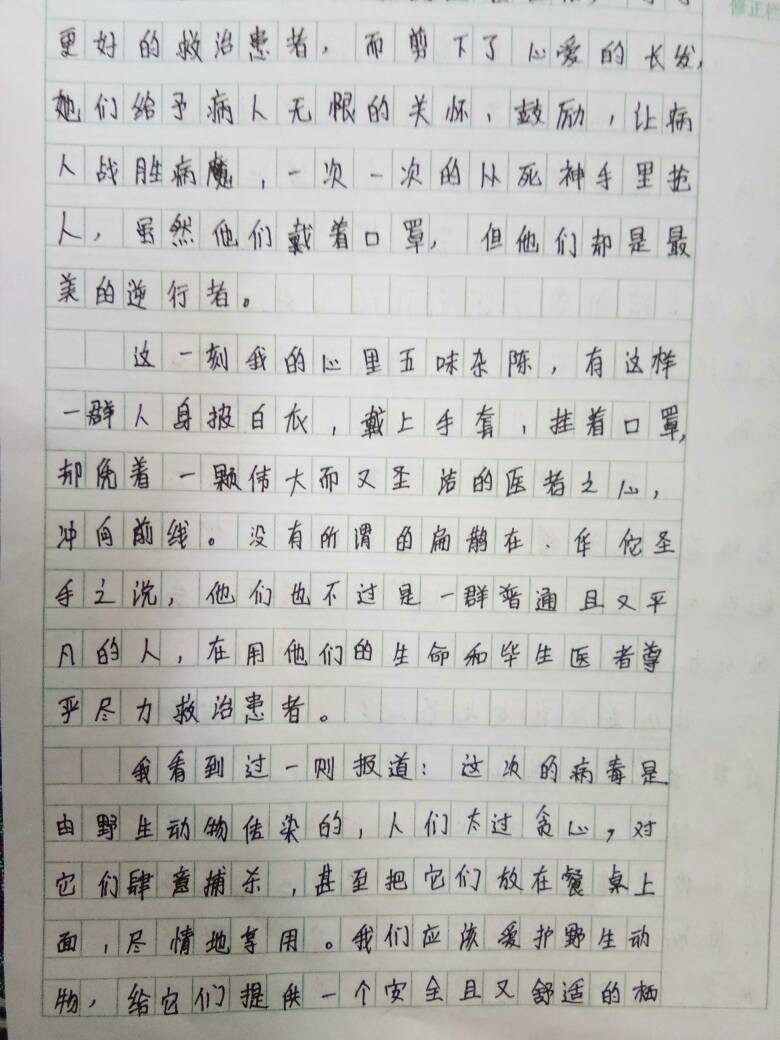 更好的救治患者，而剪下了心爱的长发，
她们给予病人无限的关怀、鼓励，让病
人战胜病魔，一次一次的从死神手里抢
人，虽然他们戴着口罩，但他们却是最
美的逆行者。
这一刻我的心里五味杂陈，有这样
一群人身披白衣，戴上手套，挂着口罩，
却凭着一颗伟大而又圣洁的医者之心，
冲向前线。没有所谓的扁鹊在、华佗圣
手之说，他们也不过是一群普通且又平
凡的人，在用他们的生命和毕生医者尊
严尽力救治患者。
我看到过一则报道：这次的病毒是
由野生动物传染的，人们太过贪心，对
它们肆意捕杀，甚至把它们放在餐桌上
面，尽情地享用。我们应该爱护野生动
物，给它们提供一个安全且又舒适的栖